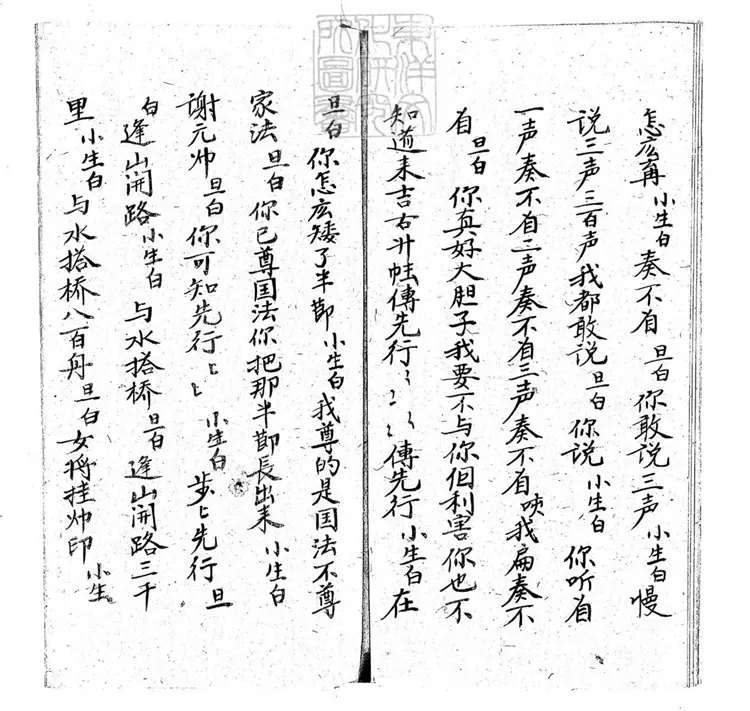 怎庅再 小生白 奏不自 旦白 你敢说三声 小生白 慢
说三声三百声我都敢说 旦白 你说 小生白 你听自
一声奏不自二声奏不自三声奏不自唊我扁奏不
自 旦白 你真好大胆子我要不与你個利害你也不
知道来吉右升帐傳先行〻〻〻傳先行 小生白 在
旦白 你怎庅矮了半節 小生白 我尊的是国法不尊
家法 旦白 你已尊国法你把那半節長出来 小生白
谢元帅 旦白 你可知先行〻〻 小生白 步〻先行 旦
白 逢山開路 小生白 与水搭桥 旦白 逢山開路三千
里 小生白 与水搭桥八百舟 旦白 女将挂帅印 小生